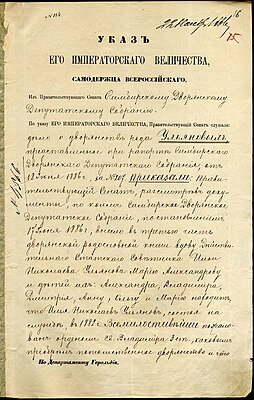 № 124.
22 Ноябр. 1886
16
15
УКАЗЪ
ЕГО ИМПЕРАТОРСКАГО ВЕЛИЧЕСТВА,
САМОДЕРЖЦА ВСЕРОССІЙСКАГО.
Изъ Правительствующаго Сената Симбирскому Дворянскому
Депутатскому Собранію.
По указу ЕГО ИМПЕРАТОРСКАГО ВЕЛИЧЕСТВА, Правительствующій Сенатъ слушали:
дѣло о дворянствѣ рода Ульяновыхъ,
представленное при рапортѣ Симбирскаго
Дворянскаго Депутатскаго Собранія, отъ
18 Іюня 1886 г. за № 207. Приказали: Прави-
тельствующій Сенатъ, разсмотрѣвъ доку-
менты, по коимъ Симбирское Дворянское
Депутатское Собраніе, постановленіемъ
17 Іюня 1886 г., внесло въ третью часть
дворянской родословной книги вдову Дѣйстви-
тельнаго Статскаго Совѣтника Ильи
Николаева Ульянова Марію Александрову
и дѣтей ихъ: Александра, Владиміра,
Дмитрія, Анну, Ольгу и Марію находитъ,
что Илья Николаевъ Ульяновъ, состоя на
службѣ, въ 1882 г. Всемилостивѣйше пожало-
ванъ орденомъ Св. Владиміра 3 ст., каковымъ
пріобрѣлъ потомственное дворянство и что
По Департаменту Герольдіи.